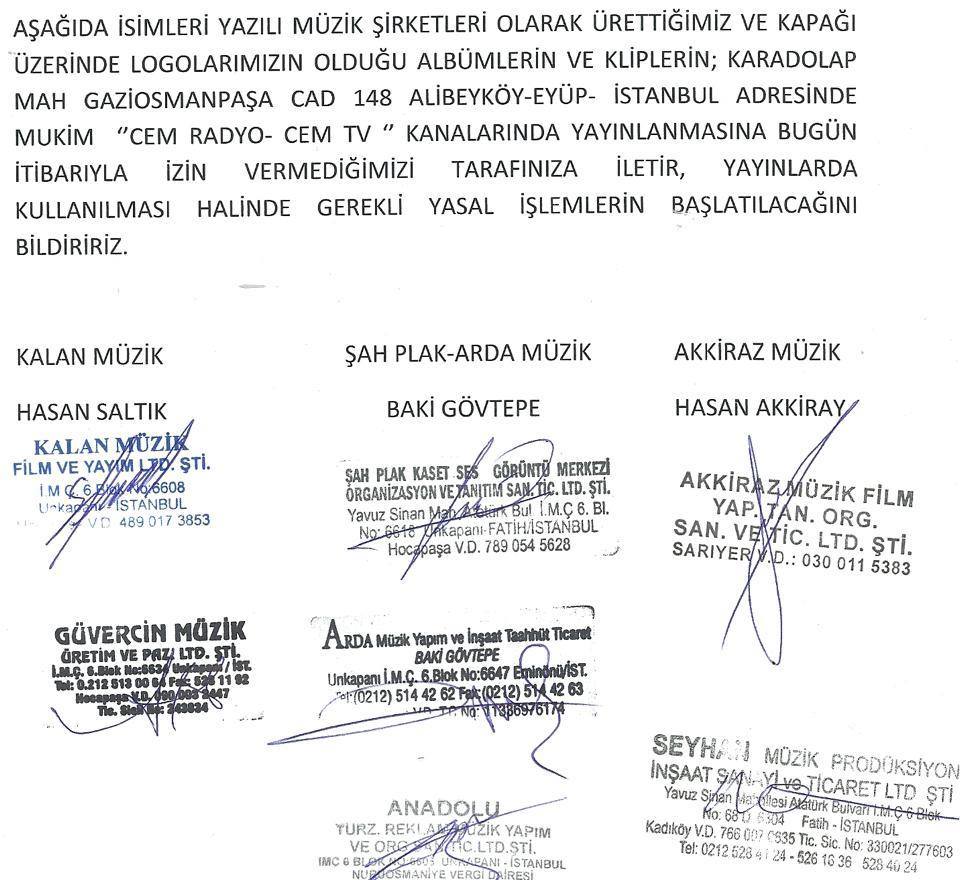 AŞAĞIDA İSİMLERİ YAZILI MÜZİK ŞİRKETLERİ OLARAK ÜRETTİĞİMİZ VE KAPAĞI
ÜZERİNDE LOGOLARIMIZIN OLDUĞU ALBÜMLERİN VE KLİPLERİN; KARADOLAP
MAH GAZİOSMANPAŞA CAD 148 ALİBEYKÖY-EYÜP- İSTANBUL ADRESİNDE
MUKİM ‘’CEM RADYO- CEM TV ‘’ KANALARINDA YAYINLANMASINA BUGÜN
İTİBARIYLA İZİN VERMEDİĞİMİZİ TARAFINIZA İLETİR, YAYINLARDA
KULLANILMASI HALİNDE GEREKLİ YASAL İŞLEMLERİN BAŞLATILACAĞINI
BİLDİRİRİZ.
KALAN MÜZİK
ŞAH PLAK-ARDA MÜZİK
AKKİRAZ MÜZİK
HASAN SALTIK
BAKİ GÖVTEPE
HASAN AKKİRAY
KALAN MÜZİK
FİLM VE YAYIM LTD. ŞTİ.
İ.M.Ç. 6.Blok No:6608
Unkapanı - İSTANBUL
V.D. 489 017 3853
ŞAH PLAK KASET SES GÖRÜNTÜ MERKEZİ
ORGANİZASYON VE TANITIM SAN. TİC. LTD. ŞTİ.
Yavuz Sinan Mah. Atatürk Bul. İ.M.Ç 6. Bl.
No: 6618 Unkapanı-FATİH/İSTANBUL
Hocapaşa V.D. 789 054 5628
AKKİRAZ MÜZİK FİLM
YAP. TAN. ORG.
SAN. VE TİC. LTD. ŞTİ.
SARIYER V.D.: 030 011 5383
GÜVERCİN MÜZİK
ÜRETİM VE PAZ. LTD. ŞTİ.
İ.M.Ç. 6.Blok No:6634 Unkapanı / İST.
Tel: 0.212 513 00 64 Fax: 526 11 92
Hocapaşa V.D.
Tic. Sicil No: 243834
ARDA Müzik Yapım ve İnşaat Taahhüt Ticaret
BAKİ GÖVTEPE
Unkapanı İ.M.Ç. 6.Blok No:6647 Eminönü/İST.
Tel:(0212) 514 42 62 Fax:(0212) 514 42 63
V.D. T.C. No: 11386976174
SEYHAN MÜZİK PRODÜKSİYON
İNŞAAT SANAYİ ve TİCARET LTD ŞTİ
Yavuz Sinan Mahallesi Atatürk Bulvarı İ.M.Ç 6 Blok
Fatih - İSTANBUL
Kadıköy V.D. 766 Tic. Sic. No: 330021/277603
Tel: 0212 528 24 - 526 16 36 528 40 24
ANADOLU
TURZ. REKLAM MÜZİK YAPIM
VE ORG SAN.TİC.LTD.ŞTİ.
IMC 6 BLOK NO:6603 UNKAPANI - İSTANBUL
NURUOSMANİYE VERGİ DAİRESİ